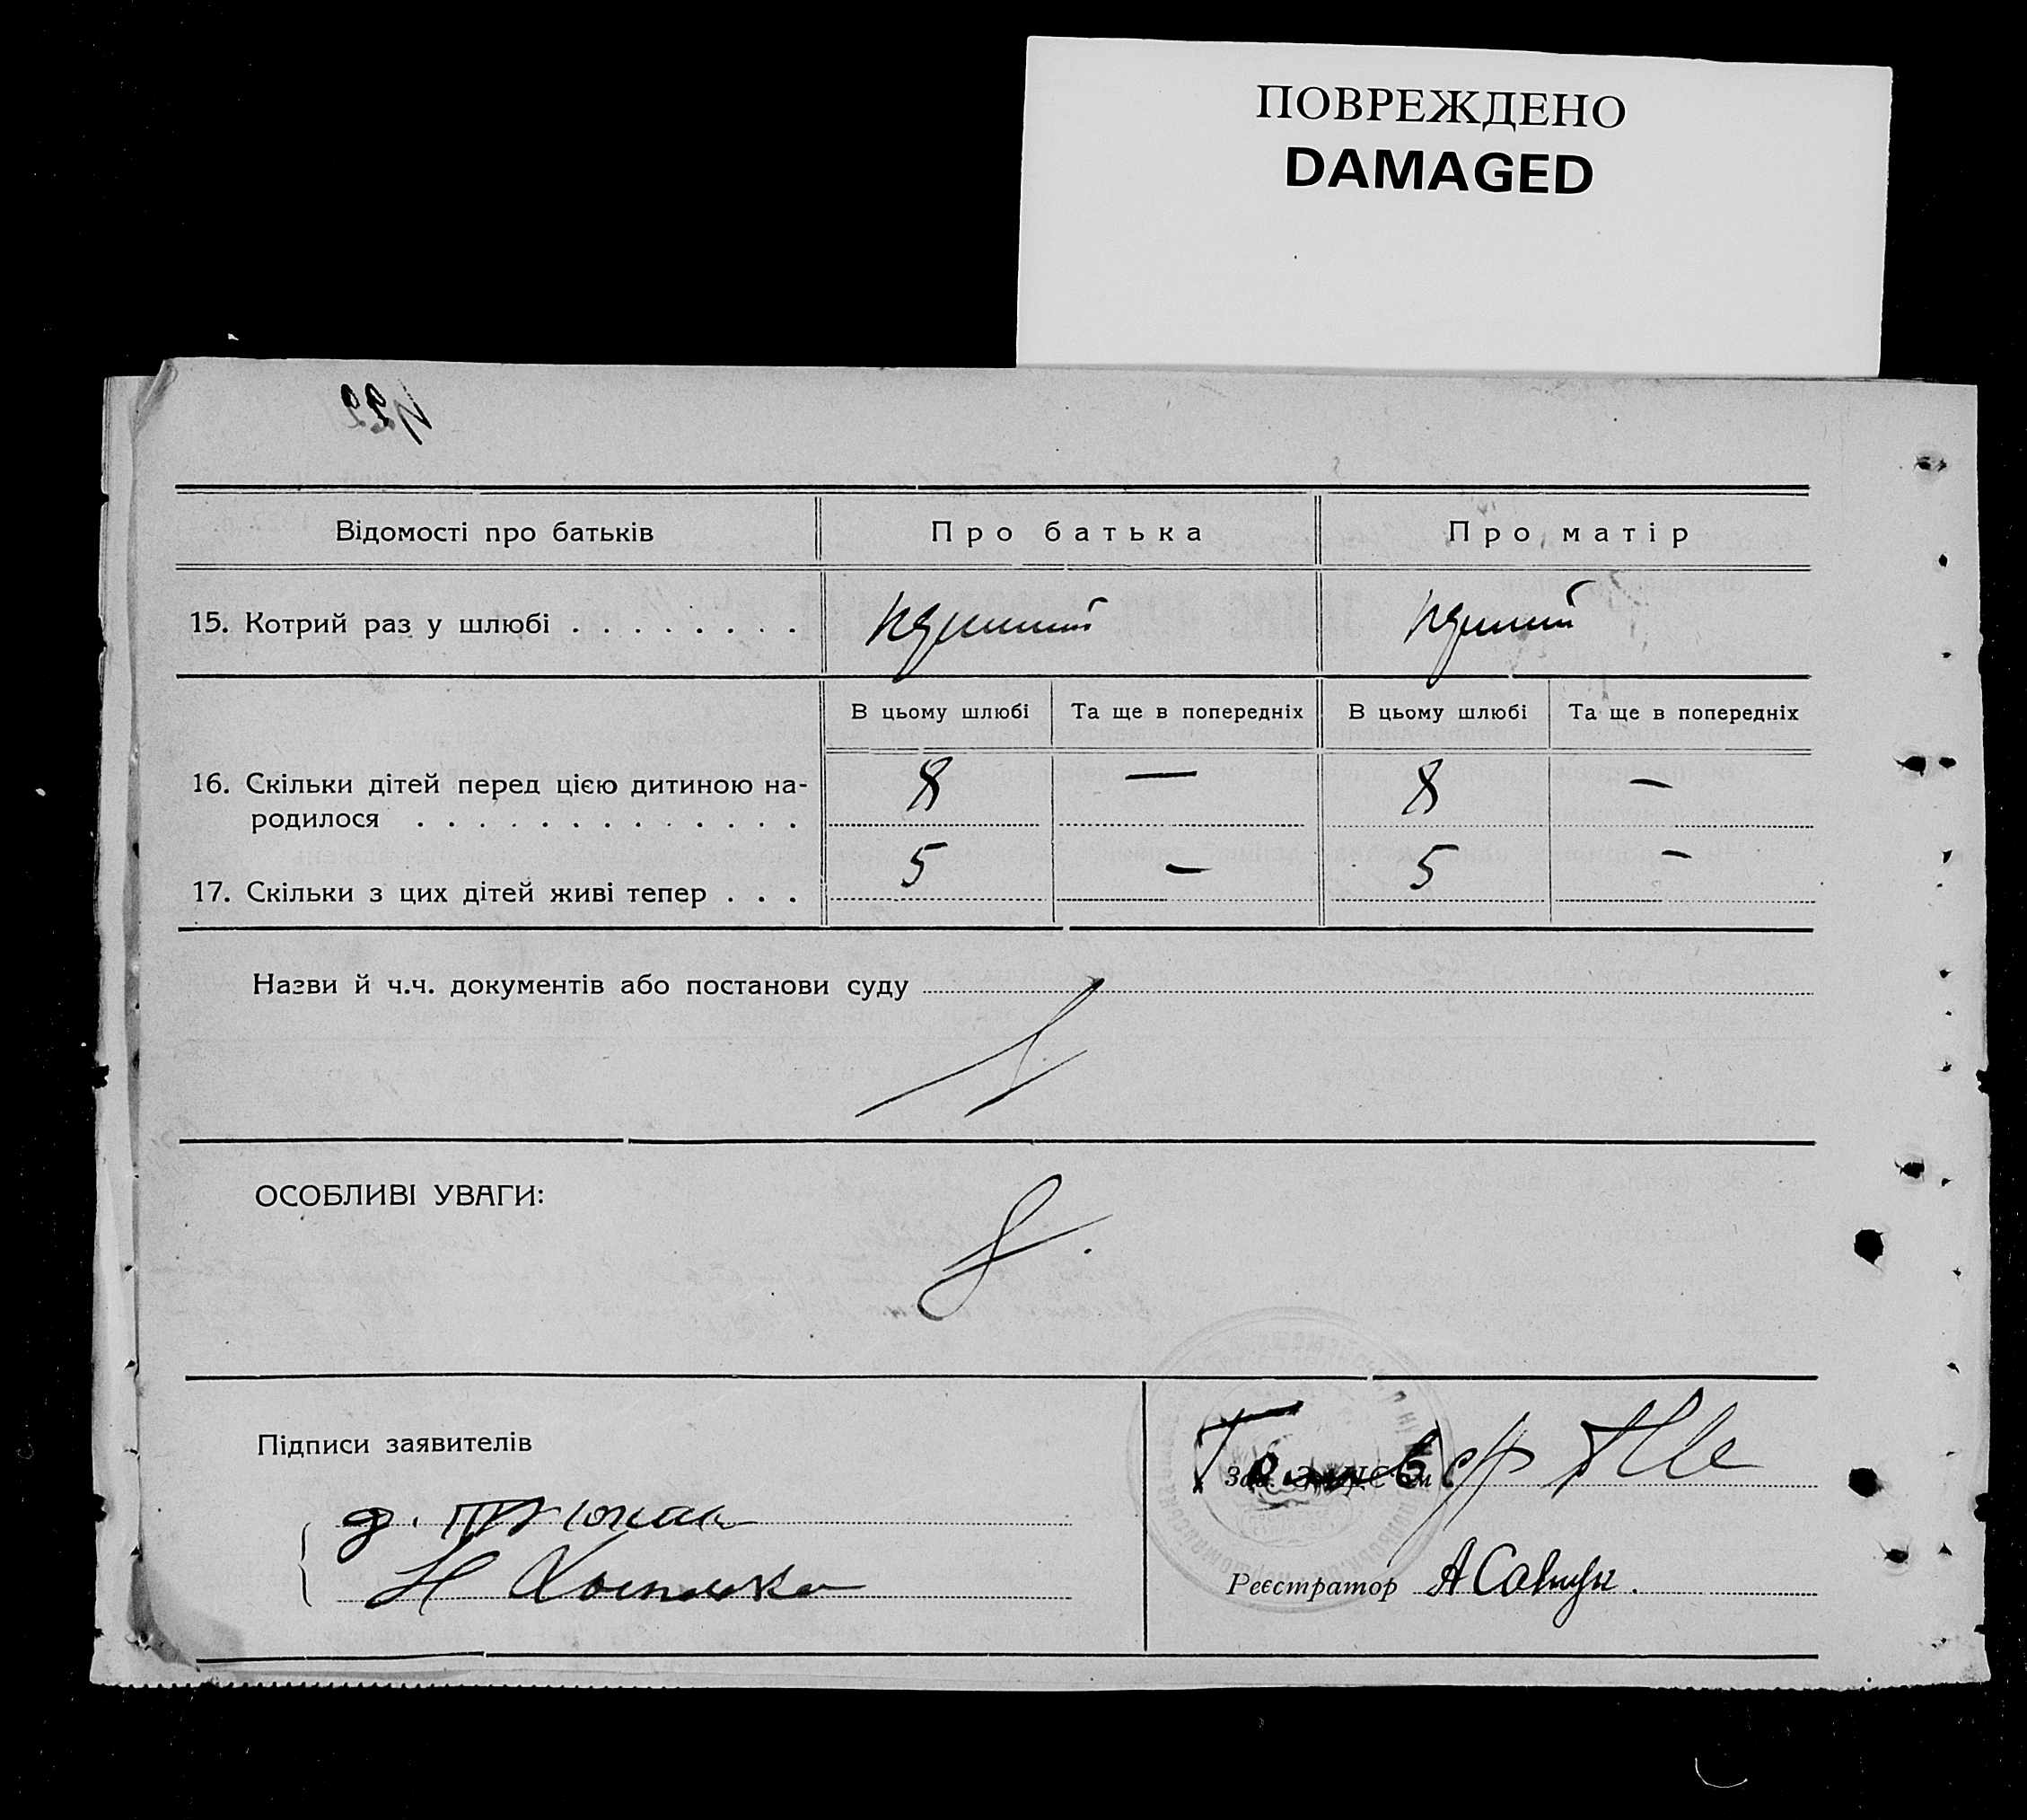 ПОВРЕЖДЕНО
DAMAGED
422
Відомості про батьків Про батька Про матір
15. Котрий раз у шлюбі . . . . . . . . перший перший
В цьому шлюбі Та ще в попередніх В цьому шлюбі Та ще в попередніх
16. Скільки дітей перед цією дитиною на- 8 — 8 —
родилося . . . . . . . . . . . . .
17. Скільки з цих дітей живі тепер . . . 5 — 5 —
Назви й ч.ч. документів або постанови суду
ОСОБЛИВІ УВАГИ:
Підписи заявителів
Реєстратор